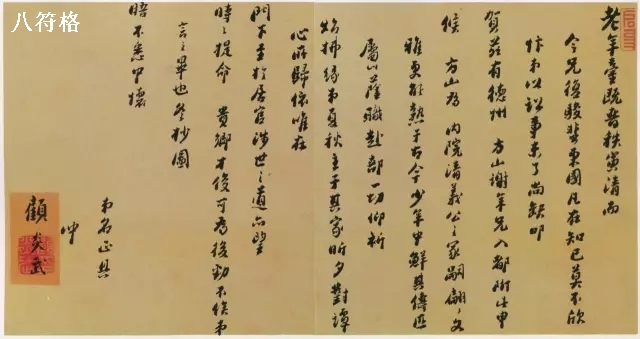 八符格
老年臺既晉秩寅清而
令兄復駿發東國凡在知己莫不欣
忭弟以訟事未了尚缺叩
賀茲有德州 方山謝年兄入都附此申
候 方山為 內院清義公之冢嗣翩翩文
雅更能熟于古今少年中鮮其儔匹
屬以蔭職赴部一切仰祈
炤拂緣弟夏秋主于其家昕夕對譚
心所歸依唯在
門下至於居官涉世之道亦望
時〻提命 貴鄉才俊可為後勁不俟弟
言之畢也冬杪圖
晤不悉中懷
弟名正具
沖
顧炎武